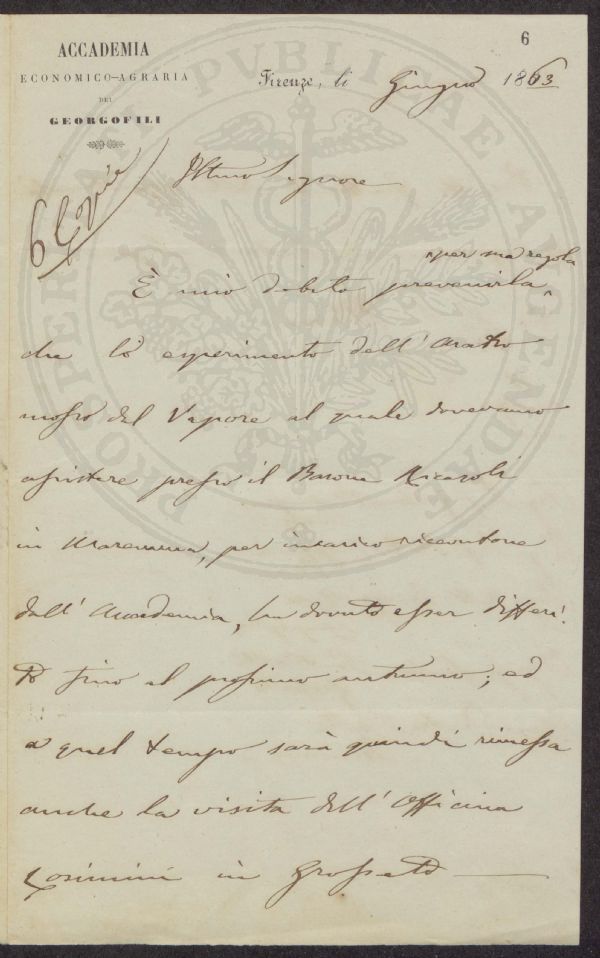 6
ACCADEMIA
ECONOMICO-AGRARIA
DEI
GEORGOFILI
Firenze, li Giugno 1863
6 Copie
Illmo Signore
È mio debito prevenirla ^per sua regola^
che lo esperimento dell' Aratro
mosso dal Vapore al quale dovevamo
assistere presso il Barone Ricasoli
in Maremma, per incarico ricevutone
dall' Accademia, ha dovuto esser differi-
to fino al prossimo autunno; ed
a quel tempo sarà quindi rimessa
anche la visita dell' Officina
Cosimini in Grosseto
PROSPERITATI PVBLICAE AVGENDAE